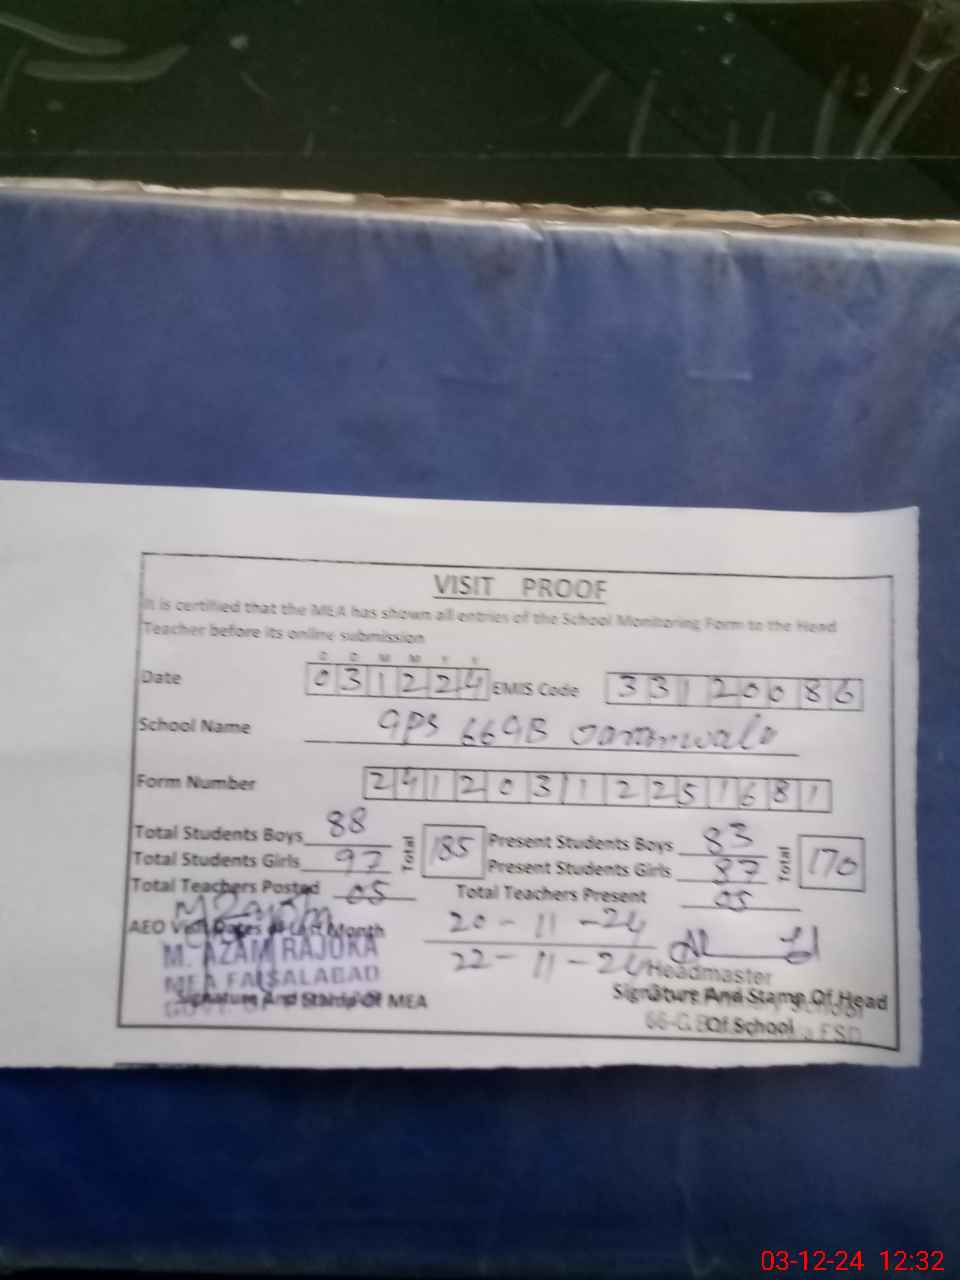 VISIT PROOF
It is certified that the MEA has shown all entries of the School Monitoring Form to the Head
Teacher before its online submission
D D M M Y Y
Date 031224 EMIS Code 33120086
School Name GPS 66GB
Form Number 241203112251681
Total Students Boys 88 Total 185 Present Students Boys 83 Total 170
Total Students Girls 97 Present Students Girls 87
Total Teachers Posted 05 Total Teachers Present 05
AEO Visit Dates of Last Month 20-11-24
22-11-24
M. AZAM RAJOKA
MEA FAISALABAD
Signature And Stamp Of MEA
Headmaster
Signature And Stamp Of Head
Of School
66-G.B FSD
03-12-24 12:32